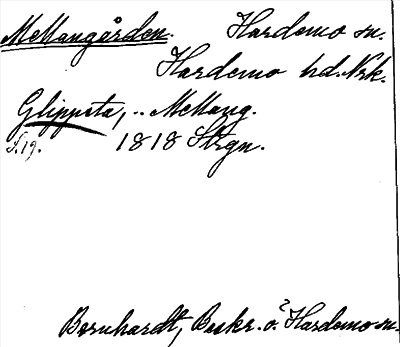 Mellangården. Hardemo sn.
Hardemo hd. Nrk.
Glippsta, „ Mellang.
S. 19. 1818 Strgn.
Bernhardt, Beskr. o. Hardemo sn.